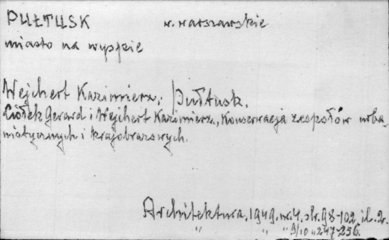 PUŁTUSK w. warszawskie
miasto na wyspie
Wejchert Kazimierz: Pułtusk.
Ciołek Gerard i Wejchert Kazimierz, Konserwacja zespołów urba
nistycznych i krajobrazowych.
Architektura, 1949, nr. 4, str. 98-102, il. 2.
" " " 9/10 " 247-256.